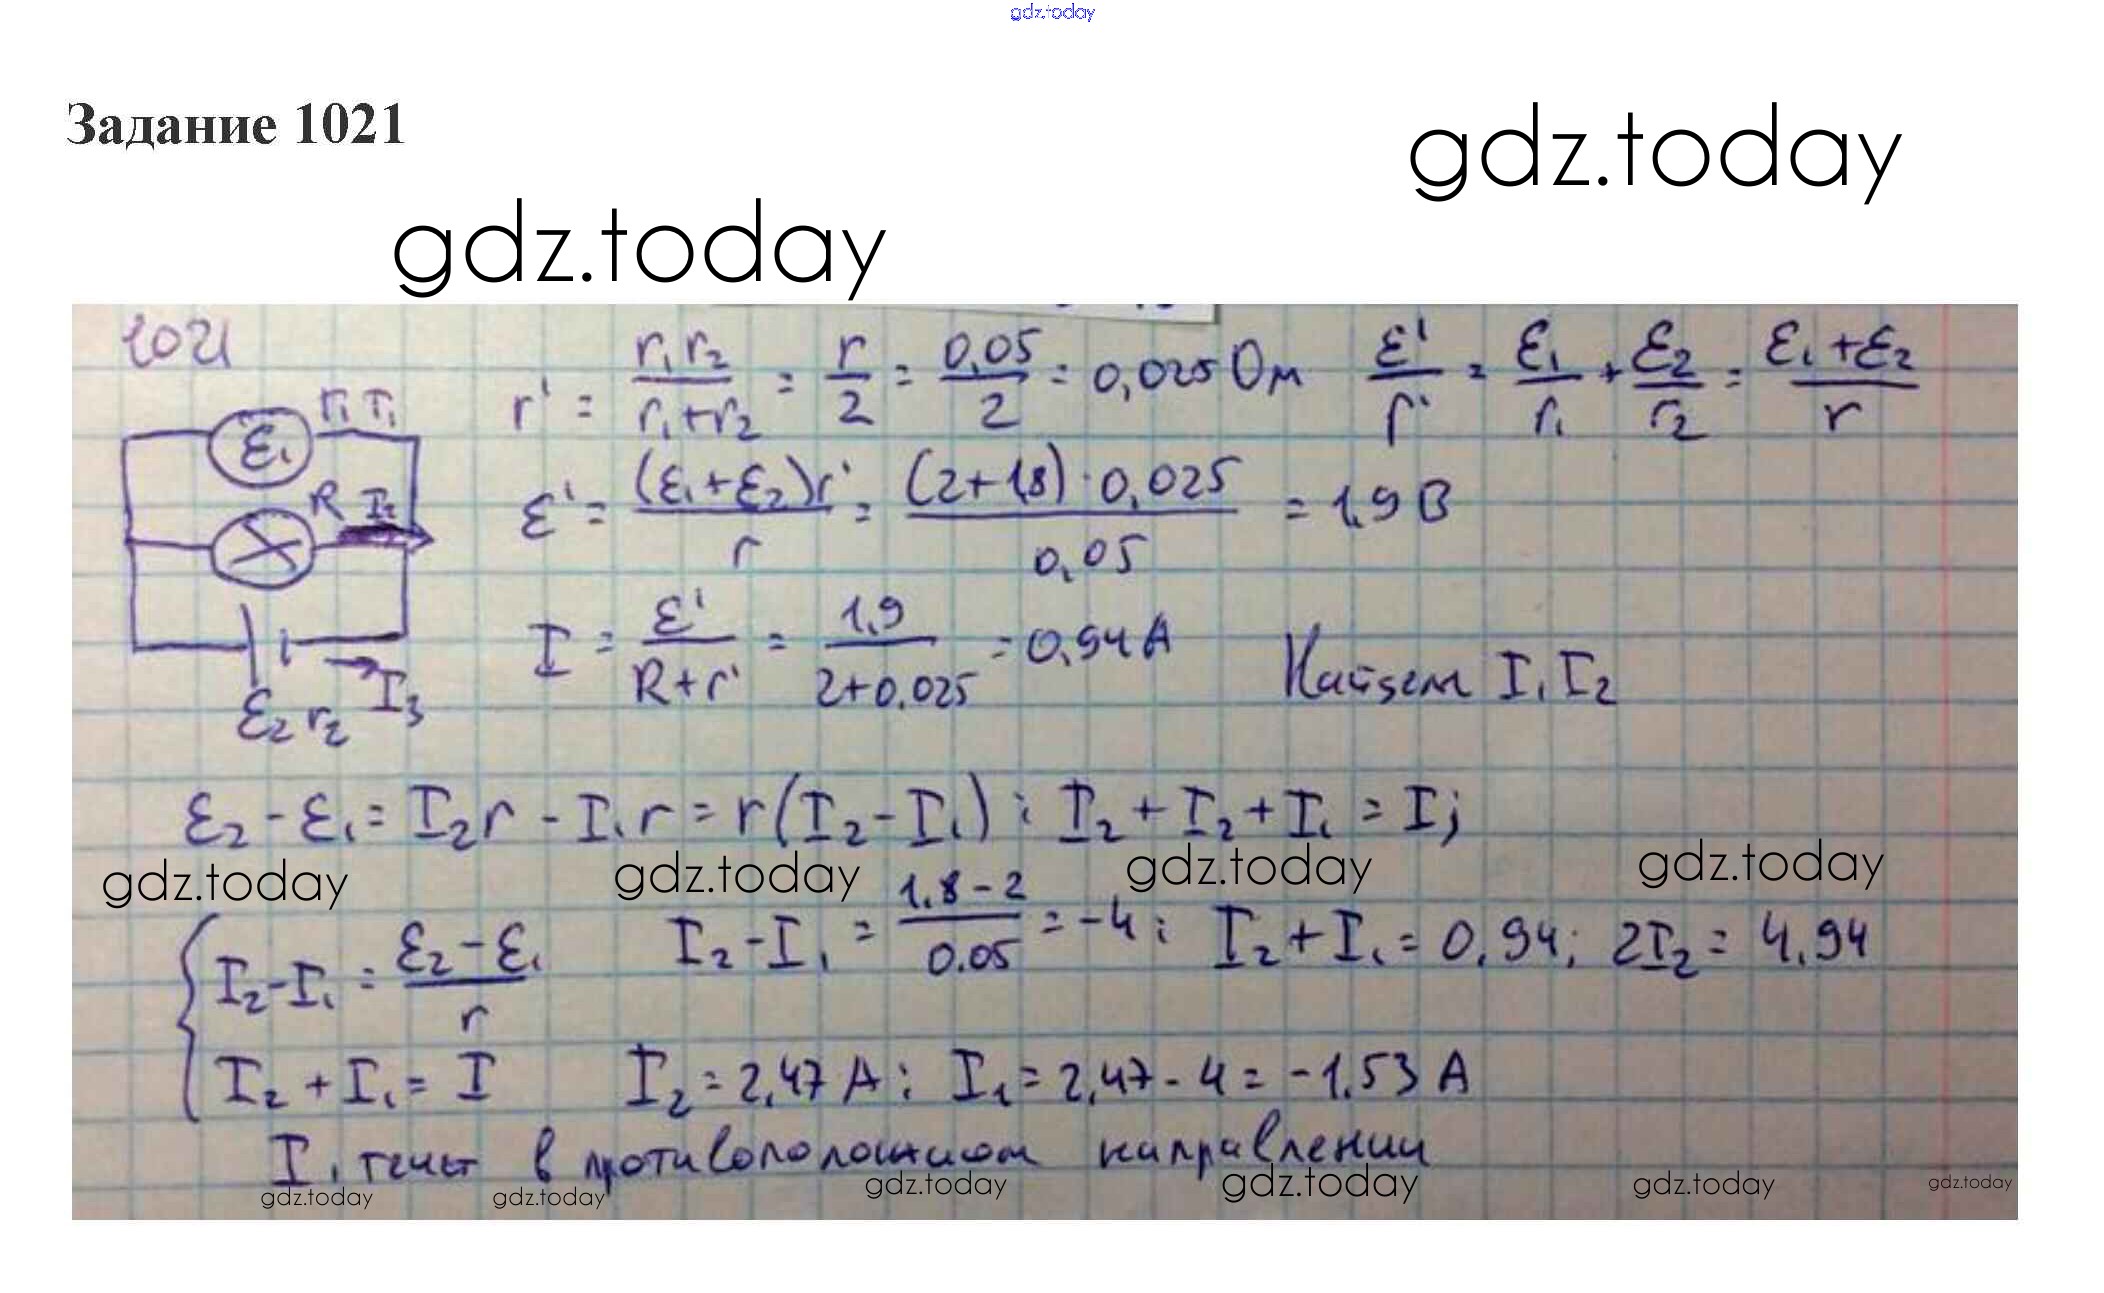 gdz.today
Задание 1021
gdz.today
gdz.today
1021
r' = r₁r₂/(r₁+r₂) = r/2 = 0,05/2 = 0,025 Ом   ε'/r' = ε₁/r₁ + ε₂/r₂ = (ε₁+ε₂)/r
r₁ I₁
ε₁
R I₂
ε' = (ε₁+ε₂)r'/r = (2+1,8)·0,025/0,05 = 1,9 В
I = ε'/(R+r') = 1,9/(2+0,025) = 0,94 А   Найдем I₁ I₂
ε₂ r₂ I₃
ε₂ - ε₁ = I₂r - I₁r = r(I₂-I₁); I₂ + I₂ + I₁ = I;
gdz.today gdz.today gdz.today gdz.today
{ I₂-I₁ = (ε₂-ε₁)/r   I₂-I₁ = (1,8-2)/0.05 = -4; I₂+I₁ = 0,94; 2I₂ = 4,94
I₂ + I₁ = I   I₂ = 2,47 А; I₁ = 2,47-4 = -1,53 А
I₁ течет в противоположном направлении
gdz.today gdz.today gdz.today gdz.today gdz.today gdz.today